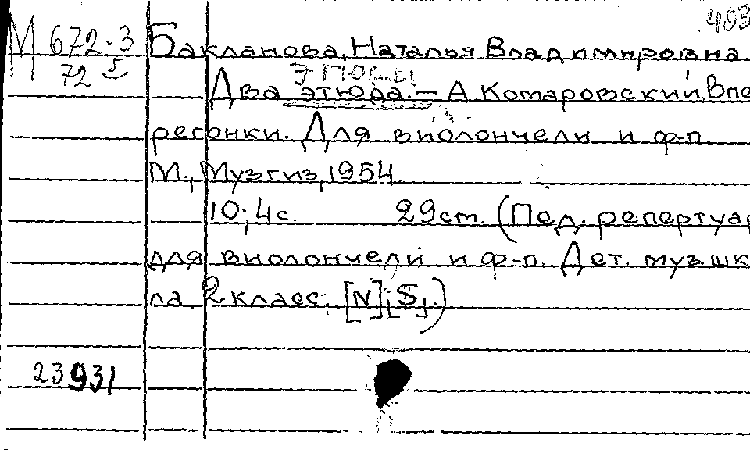 483
М 672-3 Бакланова, Наталья Владимировна
72
Два этюда. — А. Комаровский, Впе
регонки. Для виолончели и ф-п
М., Музгиз, 1954
10; 4с. 29см. (Пед. репертуар
для виолончели и ф-п. Дет. муз. шк
ла 2 класс. [N]; [S].)
23931